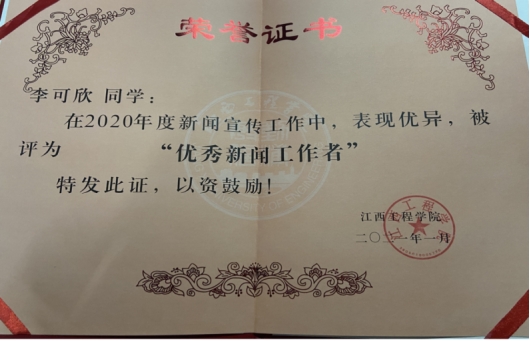 荣誉证书
李可欣 同学：
在2020年度新闻宣传工作中，表现优异，被
评为 “优秀新闻工作者”
特发此证，以资鼓励！
江西工程学院
二〇二一年一月